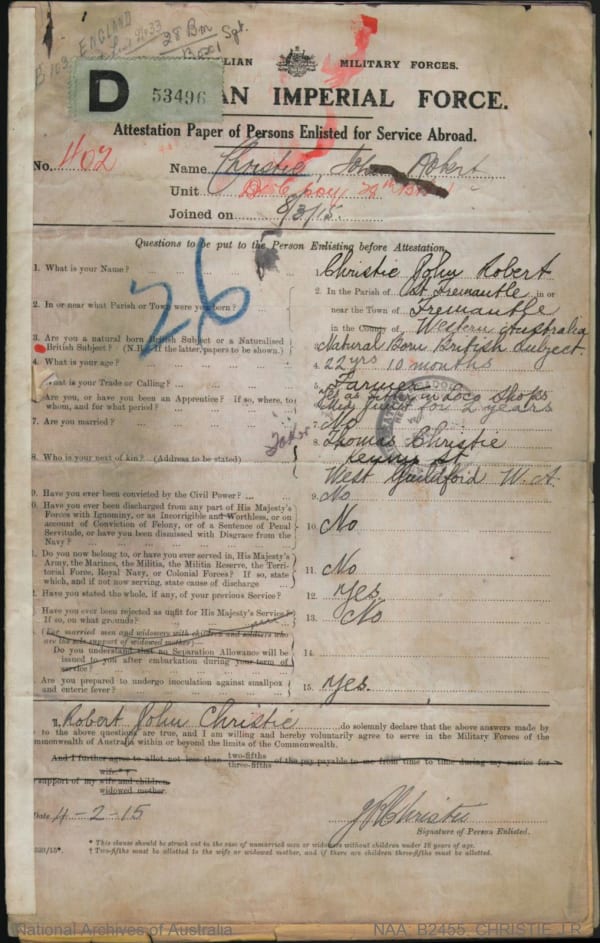 ENGLAND
28 Bn
Sgt.
Box 1
LIAN MILITARY FORCES.
D 53496
AN IMPERIAL FORCE.
Attestation Paper of Persons Enlisted for Service Abroad.
No. 402 Name Christie, John Robert
Unit
Joined on 8/3/15.
Questions to be put to the Person Enlisting before Attestation.
26
1. What is your Name? 1. Christie John Robert
2. In or near what Parish or Town were you born? 2. In the Parish of St Fremantle in or
near the Town of Fremantle
in the County of Western Australia
3. Are you a natural born British Subject or a Naturalised
British Subject? (N.B. If the latter, papers to be shown.) 3. Natural Born British Subject.
4. What is your age? 4. 22 yrs 10 months
What is your Trade or Calling? 5. Farmer
Are you, or have you been an Apprentice? If so, where, to
whom, and for what period? Yes as fitter in Loco Shops
for 2 years
7. Are you married? 7. No
8. Who is your next of kin? (Address to be stated) 8. Thomas Christie
St
West Guildford W.A.
9. Have you ever been convicted by the Civil Power? 9. No
0. Have you ever been discharged from any part of His Majesty's
Forces with Ignominy, or as Incorrigible and Worthless, or on
account of Conviction of Felony, or of a Sentence of Penal
Servitude, or have you been Dismissed with Disgrace from the
Navy? 10. No
1. Do you now belong to, or have you ever served in, His Majesty's
Army, the Marines, the Militia, the Militia Reserve, the Terri-
torial Force, Royal Navy, or Colonial Forces? If so, state
which, and if not now serving, state cause of discharge 11. No
2. Have you stated the whole, if any, of your previous Service? 12. Yes
Have you ever been rejected as unfit for His Majesty's Service?
If so, on what grounds? 13. No
(For married men and widowers with children and soldiers who
are the sole support of widowed mother)
Do you understand that no Separation Allowance will be
issued to you after embarkation during your term of
service? 14.
Are you prepared to undergo inoculation against smallpox
and enteric fever? 15. Yes.
I, Robert John Christie do solemnly declare that the above answers made by
to the above questions are true, and I am willing and hereby voluntarily agree to serve in the Military Forces of the
mmonwealth of Australia within or beyond the limits of the Commonwealth.
And I further agree to allot not less than two-fifths
three-fifths of the pay payable to me from time to time during my service for
support of my wife
wife and children
widowed mother.
Date 4-2-15 J R Christie
Signature of Person Enlisted.
* This clause should be struck out in the case of unmarried men or widowers without children under 18 years of age.
† Two-fifths must be allotted to the wife or widowed mother, and if there are children three-fifths must be allotted.
National Archives of Australia
NAA: B2455, CHRISTIE J R